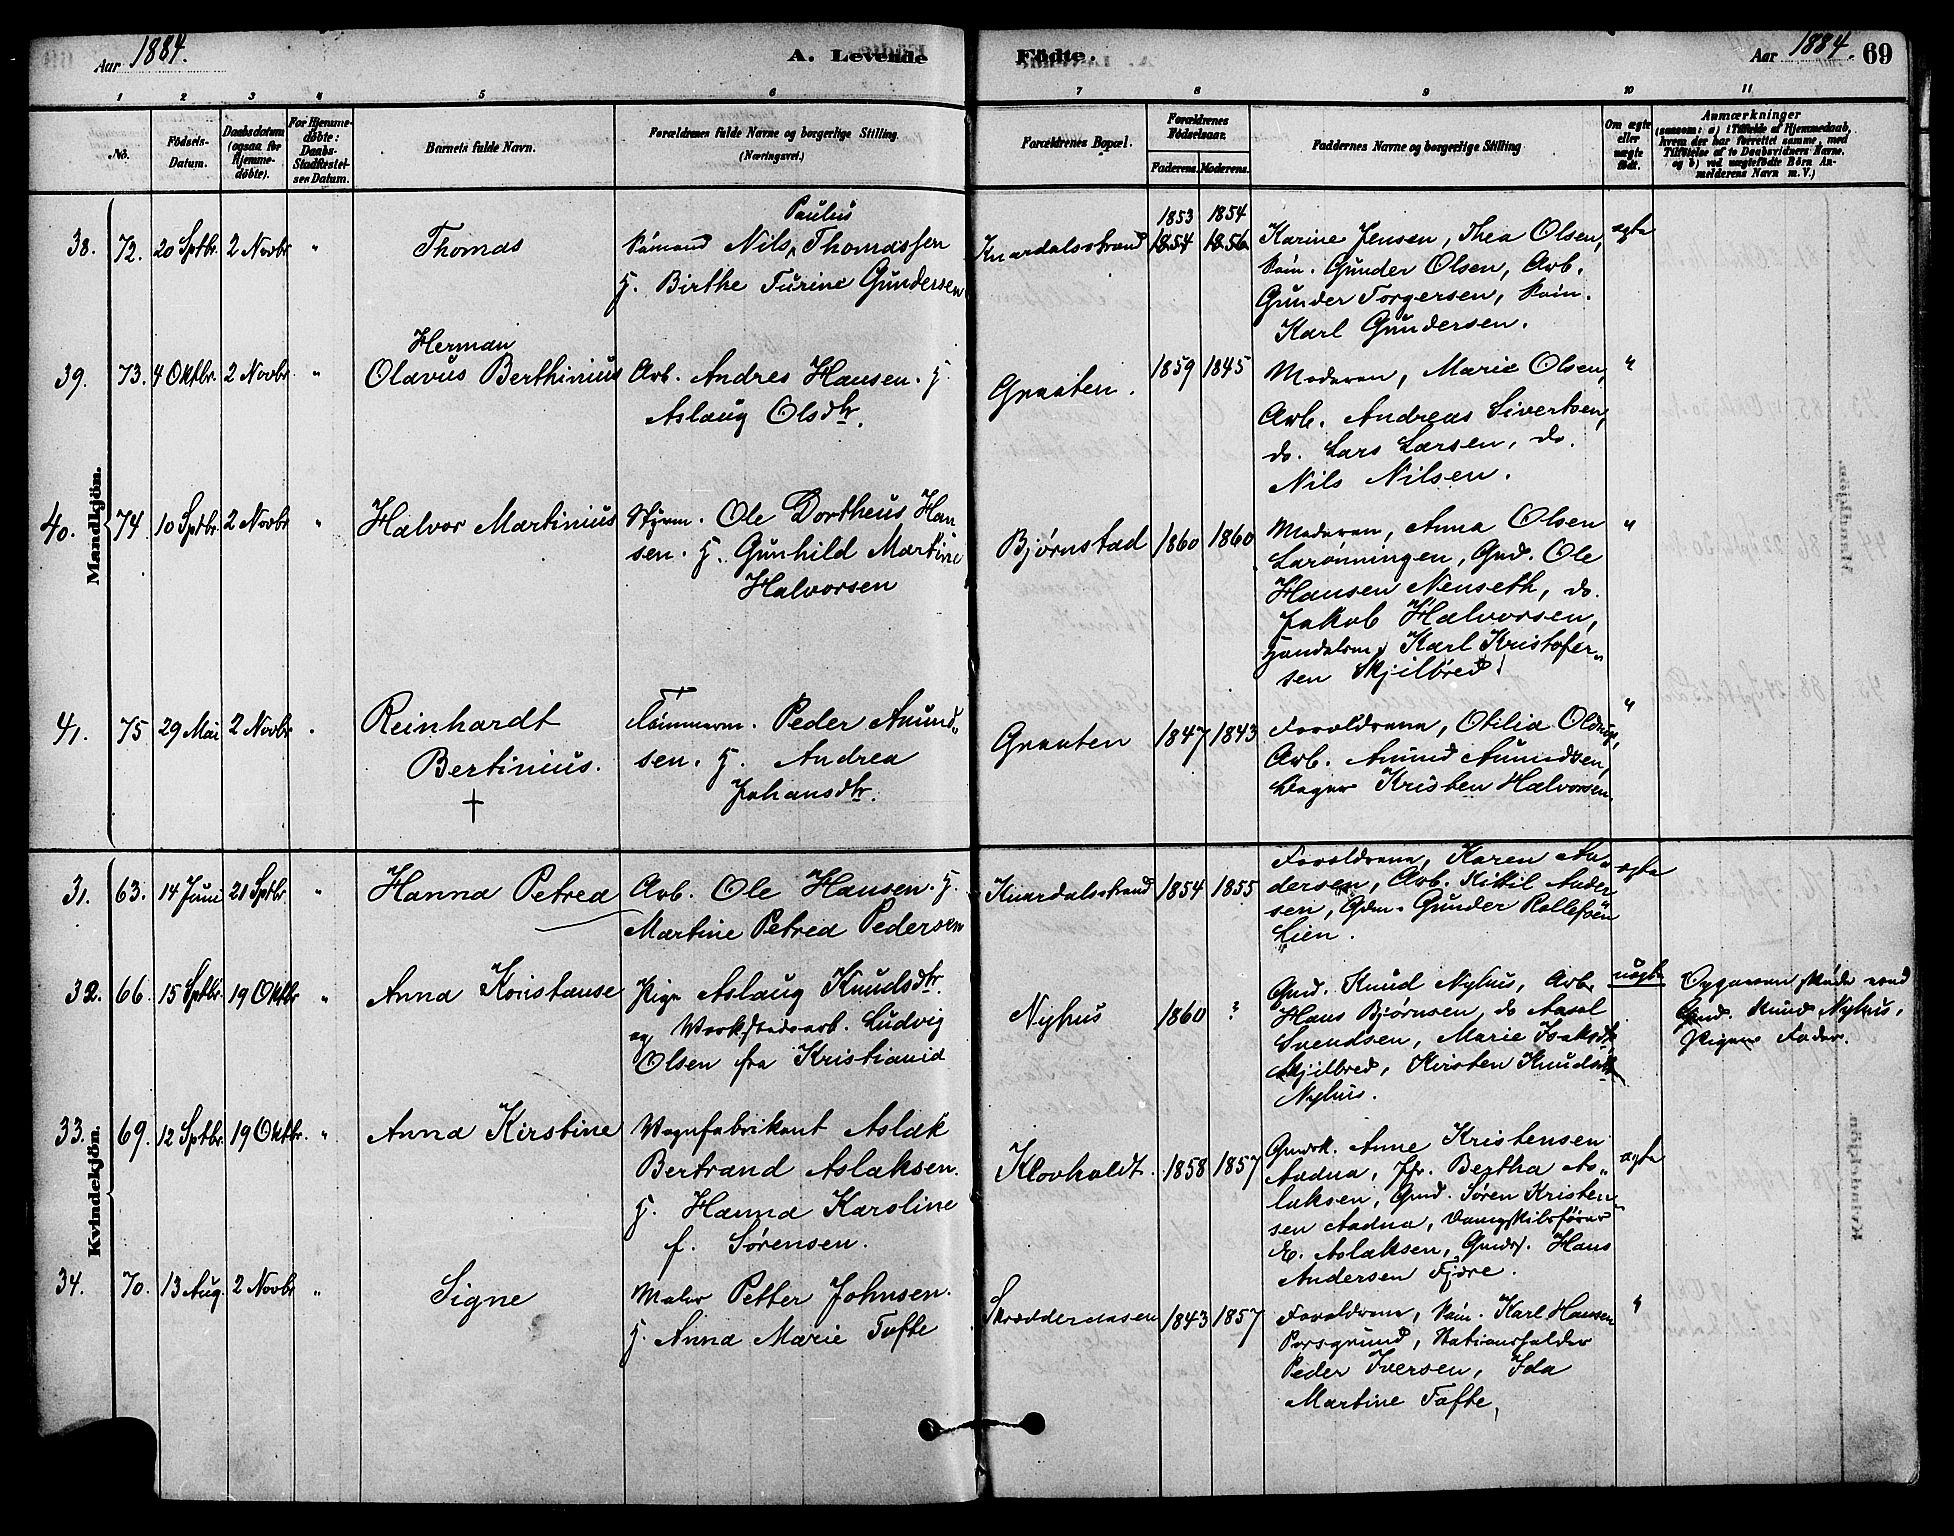 Aar 1884.
A. Levende
Födte.
Aar 1884.
69
1 2 3 4 5 6 7 8 9 10 11
No.
Födsels-
Datum.
Daabsdatum
(ogsaa for
Hjemme-
døbte).
For Hjemme-
døbte:
Daabs-
Stadfæstel-
ses Datum.
Barnets fulde Navn.
Forældrenes fulde Navne og borgerlige Stilling.
(Næringsvei.)
Forældrenes Bopæl.
Forældrenes
Födselsaar.
Faderens. Moderens.
Faddernes Navne og borgerlige Stilling
Om ægte
eller
uægte
født.
Anmærkninger
(saasom: a) i Tilfælde af Hjemmedaab,
hvem der har forrettet samme, med
Tilföielse af to Daabsvidners Navne.
og b) ved uægtefödte Börn An-
melderens Navn m. V.)
Mandkjön.
38. 72. 20 Sptbr. 2 Novbr "
Thomas
Paulus
Sömand Nils Thomassen
H. Birthe Turine Gundersen
Knardalsstrand
1853 1854
1854 1856
Karine Jensen, Thea Olsen,
Söm. Gunder Olsen, Arb.
Gunder Torgersen, Söm.
Karl Gundersen.
ægte
39. 73. 4 Oktbr. 2 Novbr "
Herman
Olavus Berthinius
Arb. Andres Hansen. H.
Aslaug Olsdtr.
Graaten.
1859 1845
Moderen, Marie Olsen,
Arb. Andreas Sivertsen,
do. Lars Larsen, do.
Nils Nilsen.
"
40. 74 10 Sptbr. 2 Novbr "
Halvor Martinius
Styrm. Ole Dortheus Han
sen. H. Gunhild Martine
Halvorsen
Bjørnstad
1860 1860
Moderen, Anna Olsen
Larönningen, Gmd. Ole
Hansen Nenseth, do.
Jakob Halvorsen,
Handelsm. Karl Kristofer-
sen Skjilbred.
"
41. 75 29 Mai 2 Novbr "
Reinhardt
Bertinius.
†
Tömmerm. Peder Amund-
sen. H. Andrea
Johansdtr.
Graaten
1847 1843
Forældrene, Otilia
Arb. Amund Amundsen,
Kristen Halvorsen.
"
Kvindekjön.
31. 63. 14 Juni 21 Sptbr. "
Hanna Petrea
Arb. Ole Hansen. H.
Martine Petrea Pedersen
Knardalsstrand
1854 1855
Forældrene, Karen An-
dersen, Arb. Kittil Ander
sen, Gdm. Gunder Rollefsen
Lien.
ægte
32. 66. 15 Sptbr. 19 Oktbr "
Anna Konstanse
Pige Aslaug Knudsdtr.
og Værkstedsarb. Ludvig
Olsen fra Kristiania
Nyhus
1860 ?
Gmd. Knud Nyhus, Arb.
Hans Bjørnsen, do Aasol
Svendsen, Marie Isaksdtr
Skjilbred, Kirsten Knudsdtr
Nyhus.
uægte
Opgaven skede ved
Gmd. Knud Nyhus,
Pigens Fader.
33. 69. 12 Sptbr. 19 Oktbr. "
Anna Kirstine
Vognfabrikant Aslak
Bertrand Aslaksen.
H. Hanna Karoline
f. Sørensen.
Klovholdt.
1858 1857
Gmdsk. Anne Kristensen
Aadna, Jfr. Bertha As-
laksen, Gmd. Søren Kristen-
sen Aadna, Dampskibsfører
E. Aslaksen, Gmds. Hans
Andersen Fjøre.
ægte
34. 70. 13 Aug. 2 Novbr "
Signe
Maler Petter Johnsen.
H. Anna Marie Tufte
Skrædderaasen
1843 1857
Forældrene, Söm. Karl Hansen
Porsgrund, Stationsholder
Peder Iversen, Ida
Martine Tufte,
"